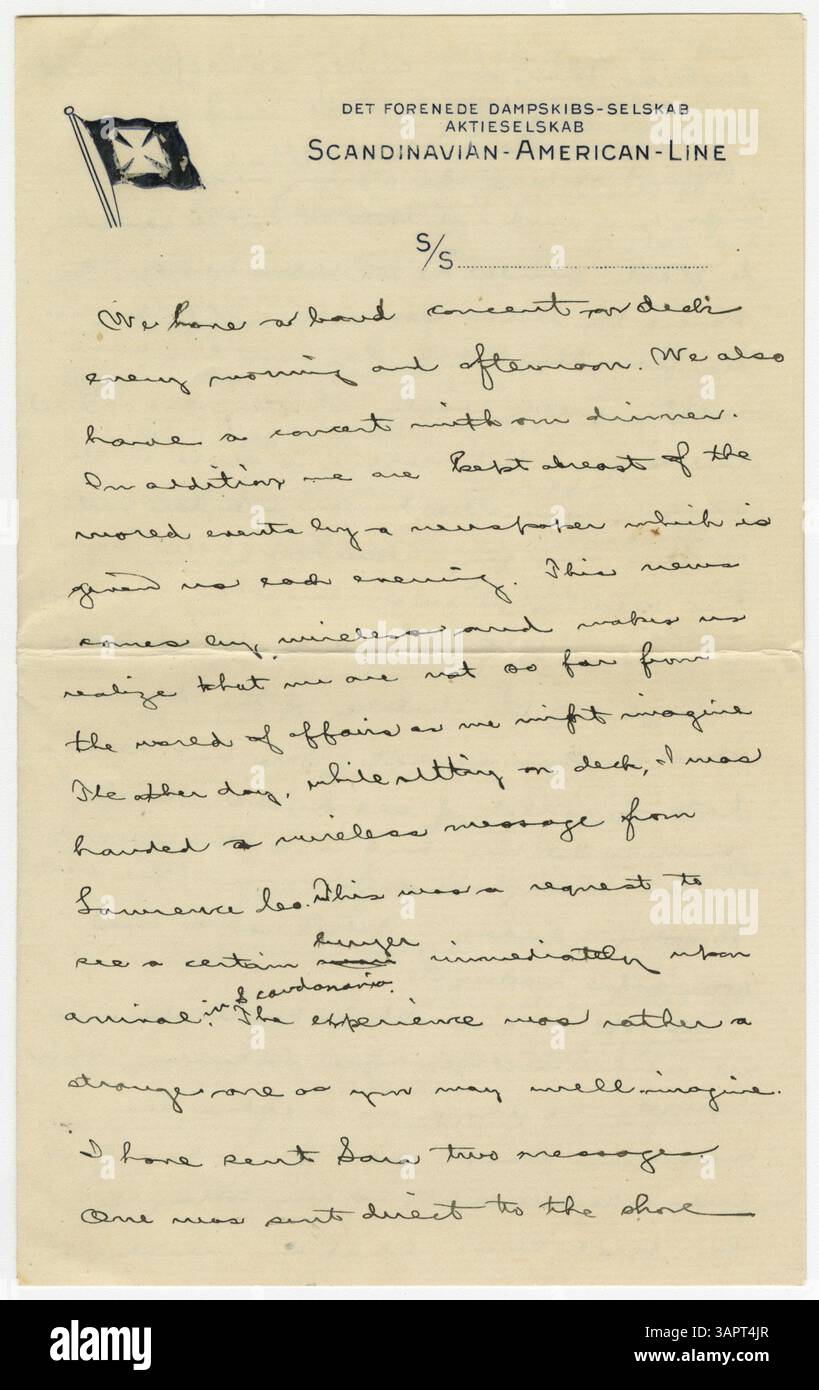 DET FORENEDE DAMPSKIBS-SELSKAB
AKTIESELSKAB
SCANDINAVIAN-AMERICAN-LINE
S/S
We have a band concert on deck
every morning and afternoon. We also
have a concert with our dinner.
In addition we are kept abreast of the
world events by a newspaper which is
given us each evening. This news
comes by wireless and makes us
realize that we are not so far from
the world of affairs as we might imagine
The other day, while sitting on deck, I was
handed a wireless message from
Lawrence Leo. This was a request to
buyer
see a certain man immediately upon
in Scandanavia.
arrival. The experience was rather a
strange one as you may well imagine.
I have sent Sara two messages.
One was sent direct to the shore
alamy
Image ID: 3APT4JR
www.alamy.com